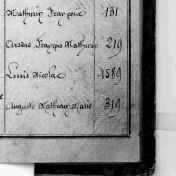 Mathurin Françoise 131
Arsène François Mathurin 219
Louis Nicolas 1589
Auguste Mathurin Marie 319